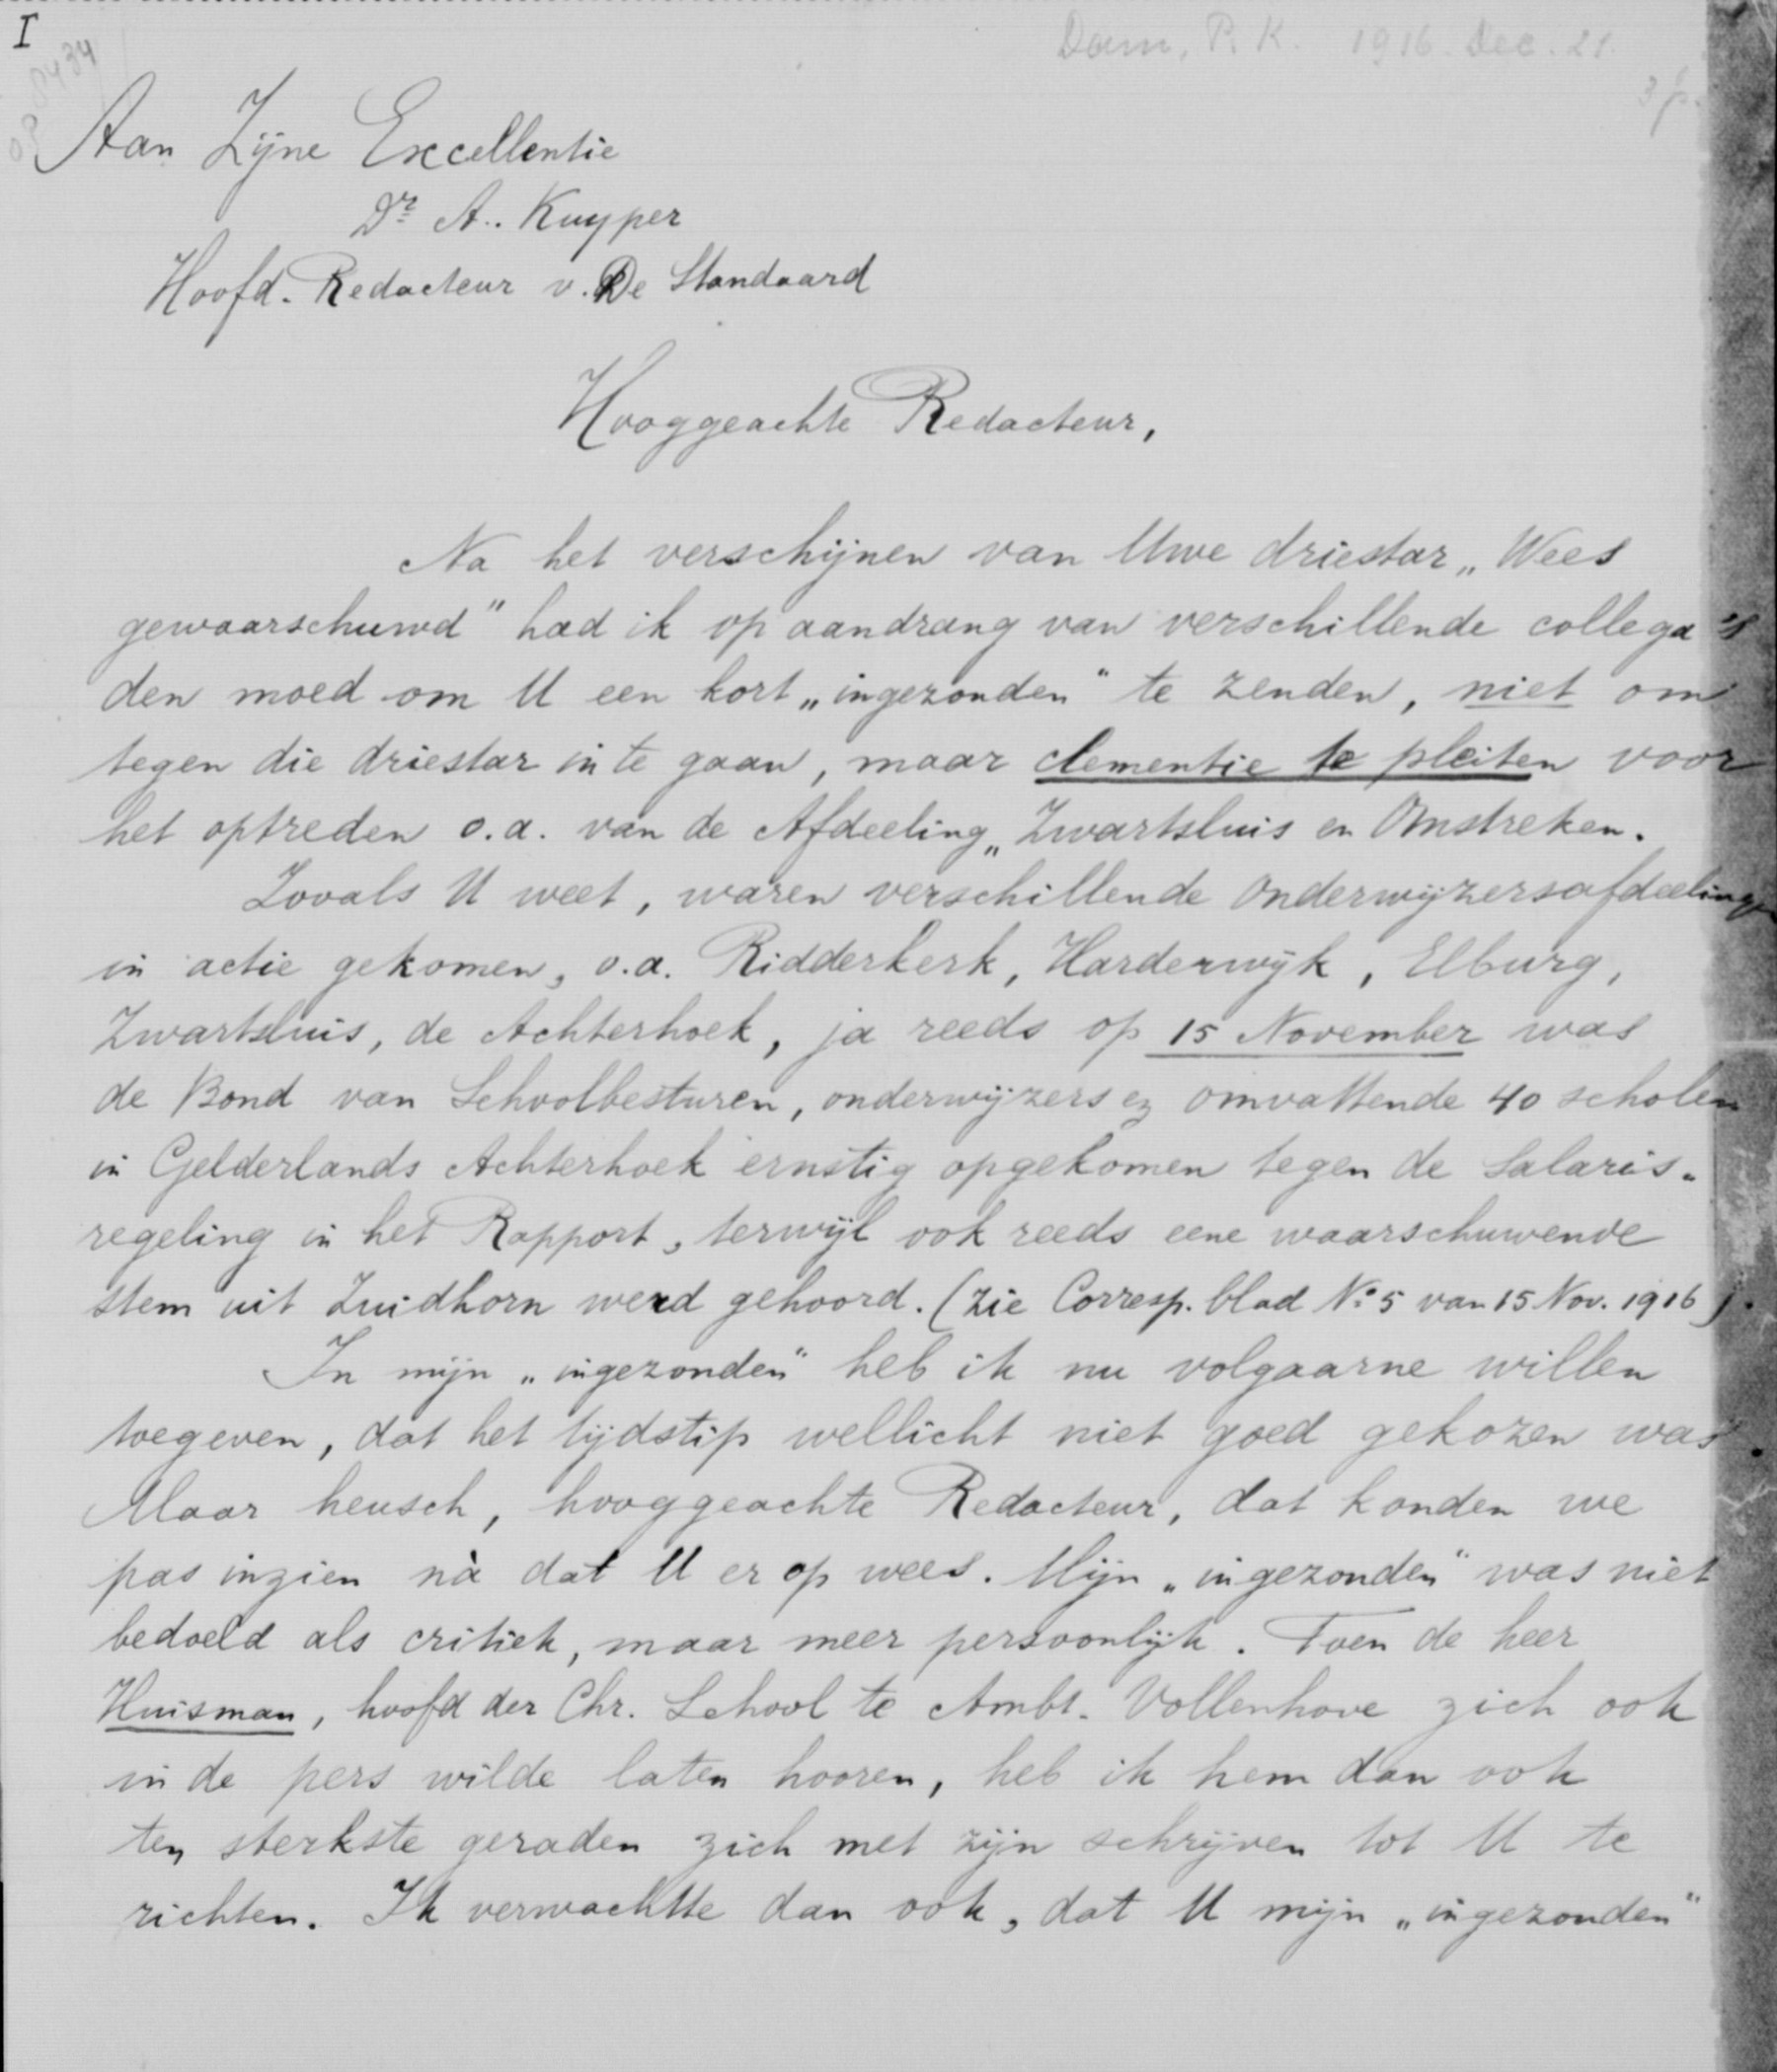 I
Dam, P. K. 1916. Dec. 21.
8434
3 p.
Aan Zijne Excellentie
Dr A. Kuyper
Hoofd-Redacteur v. De Standaard
Hooggeachte Redacteur,
Na het verschijnen van Uwe driestar „Wees
gewaarschuwd" had ik op aandrang van verschillende collega's
den moed om U een kort „ingezonden" te zenden, niet om
tegen die driestar in te gaan, maar clementie te pleiten voor
het optreden o.a. van de Afdeeling „Zwartsluis en Omstreken.
Zooals U weet, waren verschillende Onderwijzersafdeelingen
in actie gekomen, o.a. Ridderkerk, Harderwijk, Elburg,
Zwartsluis, de Achterhoek, ja reeds op 15 November was
de Bond van Schoolbesturen, onderwijzers ez omvattende 40 scholen
in Gelderlands Achterhoek ernstig opgekomen tegen de Salaris-
regeling in het Rapport, terwijl ook reeds eene waarschuwende
stem uit Zuidhorn werd gehoord. (Zie Corresp. blad No 5 van 15 Nov. 1916).
In mijn „ingezonden" heb ik nu volgaarne willen
toegeven, dat het tijdstip wellicht niet goed gekozen was.
Maar heusch, hooggeachte Redacteur, dat konden we
pas inzien nà dat U er op wees. Mijn „ingezonden" was niet
bedoeld als critiek, maar meer persoonlijk. Toen de heer
Huisman, hoofd der Chr. School te Ambt-Vollenhove zich ook
in de pers wilde laten hooren, heb ik hem dan ook
ten sterkste geraden zich met zijn schrijven tot U te
richten. Ik verwachtte dan ook, dat U mijn „ingezonden"